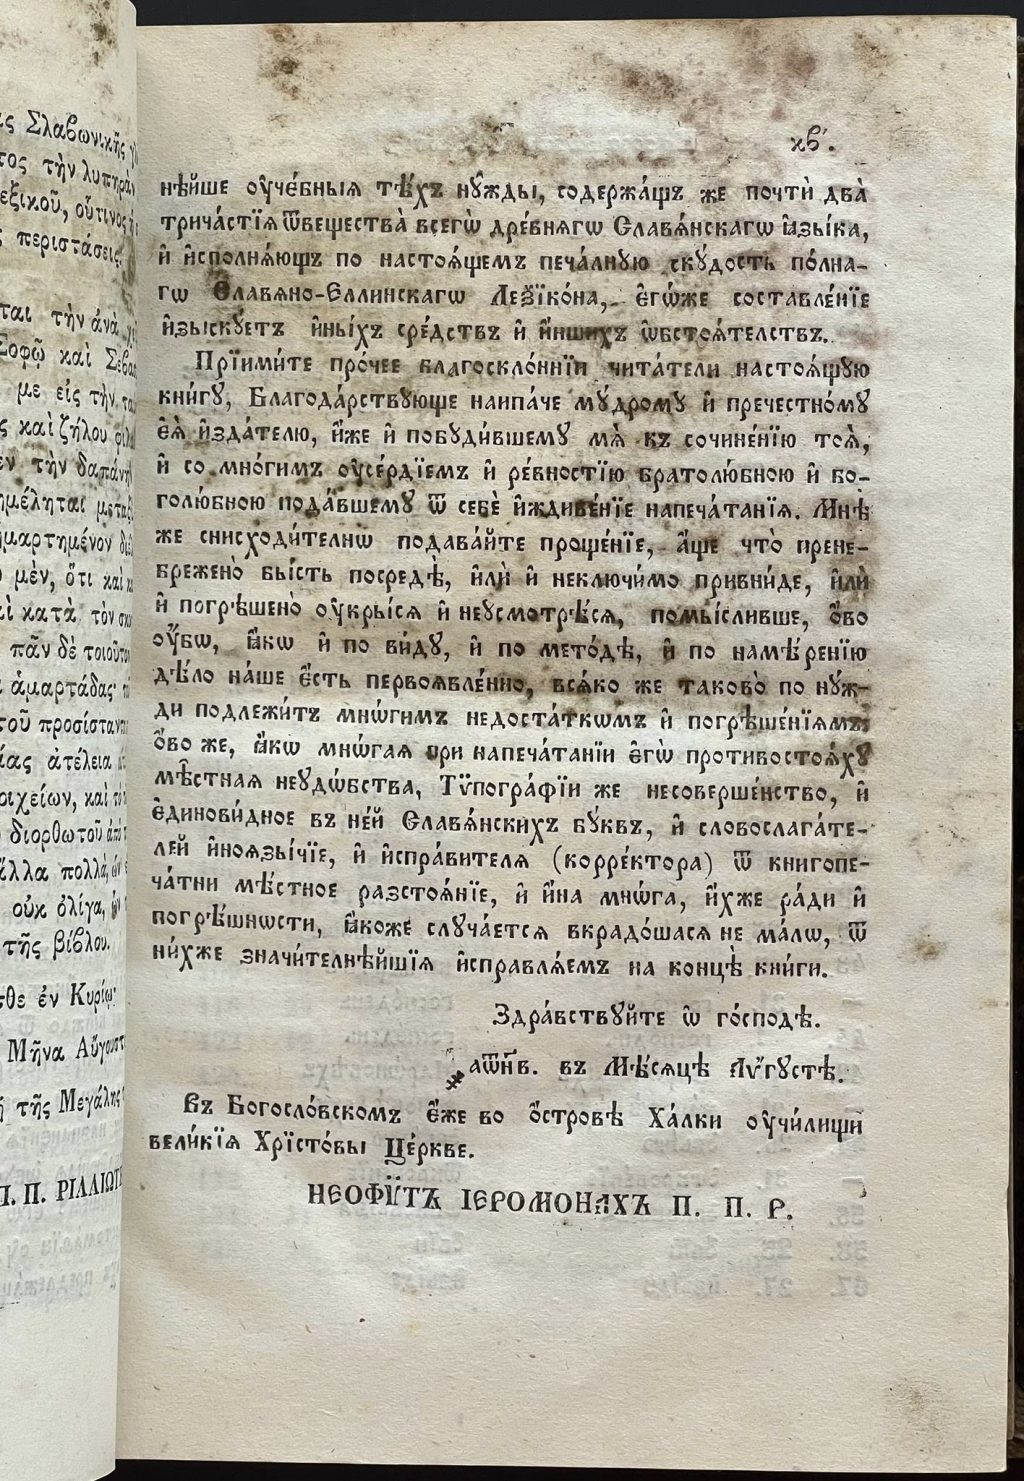 ας Σλαβωνικῆς
τος τὴν λυπηρὰν
εξικοῦ, οὗτινος
ς περιστάσεις.
ται τὴν ἀνὰ
Σοφῷ καὶ
με εἰς τὴν
ς καὶ ζήλου
εν τὴν δαπάνην
ημέλητας μεταξὺ
ημαρτημένον
μὲν, ὅτι καὶ
ὶ κατὰ τὸν
πᾶν δὲ τοιοῦτον
ἁμαρτάδας·
τοῦ προσίσταν
ίας ἀτέλεια
οιχείων, καὶ
διορθωτοῦ ἀπὸ
άλλα πολλά, ὧν
οὐκ ὀλίγα, ὧν
τῆς βίβλου.
σθε ἐν Κυρίῳ·
Μῆνα Αὔγουστ
ῇ τῆς Μεγάλης
Π. Π. ΡΙΛΛΙΩΤ
кв҃.
нѣйше ᲂу҆че́бныѧ тѣ́хъ нꙋ́жды, содержа́щъ же почтѝ два̀
тричастїѧ ѿвещества̀ всегѡ̀ дре́внѧгѡ Славѧ́нскагѡ ꙗ҆зы́ка,
и҆ и҆сполнѧ́ющъ по настоѧ́щемъ печа́лнꙋю скꙋ́дость по́лна-
гѡ Славѧно-Еллинскагѡ Леѯїко́на, є҆гѡ́же составле́нїе
и҆зыскꙋ́етъ и҆ны́хъ сре́дствъ и҆ и҆́ншихъ ѡ҆бстоѧ́телствъ.
Прїими́те про́чее благоскло́ннїи чита́тели настоѧ́щꙋю
кни́гꙋ, Благода́рствꙋюще наипа́че мꙋ́дромꙋ и҆ пречестно́мꙋ
є҆ѧ̀ и҆зда́телю, и҆́же и҆ побꙋди́вшемꙋ мѧ̀ къ сочине́нїю тоѧ̀,
и҆ со мно́гимъ ᲂу҆се́рдїемъ и҆ ре́вностїю братолю́бною и҆ бо-
голю́бною пода́вшемꙋ ѿ себѐ и҆ждиве́нїе напеча́танїѧ. Мнѣ
же снисходи́телнѡ подава́йте проще́нїе, а҆́ще что̀ прене-
бреженò бы́сть посредѣ̀, и҆лѝ и҆ неключи́мо привни́де, и҆лѝ
и҆ погрѣшенò ᲂу҆кры́сѧ и҆ неусмотрѣ́сѧ, помы́сливше, ѻ҆́во
ᲂу҆́бѡ, ꙗ҆́кѡ и҆ по ви́дꙋ, и҆ по мето́дѣ, и҆ по намѣ́ренїю
дѣ́ло на́ше є҆́сть первоѧвле́нно, всѧ́ко же таково̀ по нꙋ́ж-
ди подлежи́тъ мнѡ́гимъ недоста́ткѡмъ и҆ погрѣше́нїѧмъ;
ѻ҆́во же, ꙗ҆́кѡ мнѡ́гаѧ при напеча́танїи є҆гѡ̀ противостоѧ́хꙋ
мѣ́стнаѧ неудѡ́бства, Тѷпогра́фїи же несоверше́нство, и҆
є҆динови́дное въ не́й Славѧ́нскихъ бꙋ́квъ, и҆ словослага́те-
лей и҆ноѧзы́чїе, и҆ и҆спра́вителѧ (корре́ктора) ѿ книгопе-
ча́тни мѣ́стное разстоѧ́нїе, и҆ и҆́на мнѡ́га, и҆́хже ра́ди и҆
погрѣ́шнѡсти, ꙗ҆́коже слꙋча́етсѧ вкрадо́шасѧ не ма́лѡ, ѿ
ни́хже значи́телнѣйшїѧ и҆справлѧ́емъ на концѣ̀ кни́ги.
Здра́вствꙋйте ѡ҆ го́сподѣ.
҂аѿнв. въ Мѣ́сѧцѣ Аѵ҆́гꙋстѣ.
Въ Богосло́вскомъ є҆́же во ѻ҆́стровѣ Ха́лки ᲂу҆чи́лищи
вели́кїѧ Хрїсто́вы Це́ркве.
НЕОФѴТЪ ІЕРОМОНАХЪ П. П. Р.